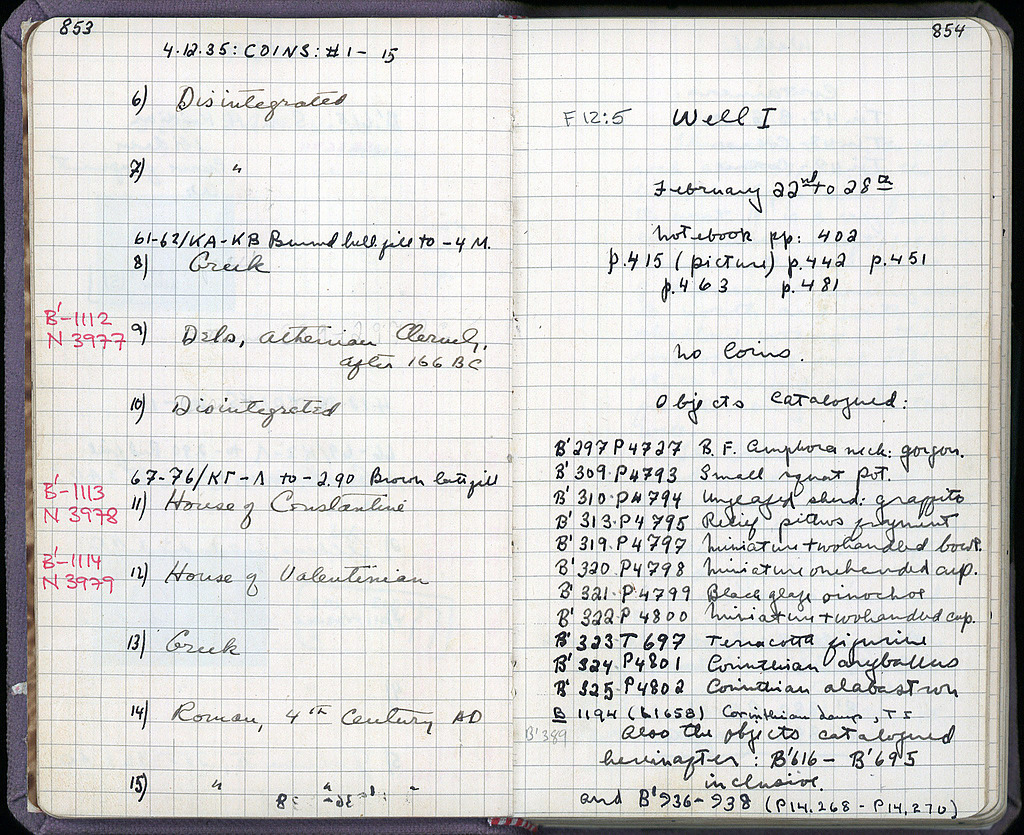 853
4.12.35: COINS: #1- 15
6) Disintegrated
7) "
61-62/KA-KB Burned bull fill to -4 M.
8) Greek
B'-1112
N 3977
9) Delos, Athenian Cleruch,
after 166 BC
10) Disintegrated
67-76/ΚΓ-Λ to -2.90 Brown late fill
B'-1113
N 3978
11) House of Constantine
B'-1114
N 3979
12) House of Valentinian
13) Greek
14) Roman, 4th Century AD
15) " " " "
854
F 12:5 Well I
February 22nd to 28th
Notebook pp: 402
p.415 (picture) p.442 p.451
p.463 p.481
No Coins.
Objects catalogued:
B' 297 P 4727 B.F. Amphora neck: gorgon.
B' 309-P4793 Small squat pot.
B' 310-P4794 Unglazed sherd: graffito
B' 313-P4795 Relief pithos fragment
B' 319.P4797 Miniature twohandled bowl.
B' 320.P4798 Miniature onehandled cup.
B' 321-P4799 Black glaze oinochoe
B' 322.P 4800 Miniature twohandled cup.
B' 323 T 697 Terracotta figurine
B' 324.P4801 Corinthian aryballus
B' 325.P4802 Corinthian alabastron
B 1194 (L1658) Corinthian lamp,
B'389 Also the objects catalogued
hereinafter: B'616 - B'695
inclusive.
and B'936-938 (P14,268 - P14,270)